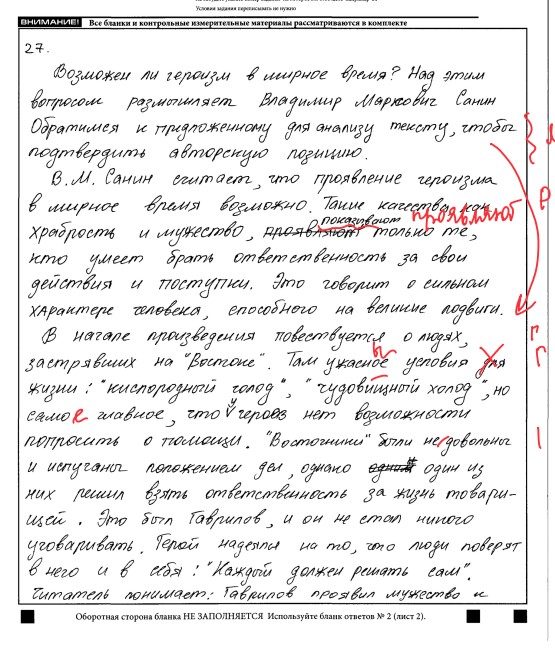 Условия задания переписывать не нужно
ВНИМАНИЕ! Все бланки и контрольные измерительные материалы рассматриваются в комплекте
27.
Возможен ли героизм в мирное время? Над этим
вопросом размышляет Владимир Маркович Санин
Обратимся к предложенному для анализу тексту, чтобы
подтвердить авторскую позицию.
В.М. Санин считает, что проявление героизма
в мирное время возможно. Такие качества, как
показывают проявляют
храбрость и мужество, проявляют только те,
кто умеет брать ответственность за свои
действия и поступки. Это говорит о сильном
характере человека, способного на великие подвиги.
В начале произведения повествуется о людях,
застрявших на "Востоке". Там ужасное условия для
жизни: "кислородный голод", "чудовищный холод", но
самое главное, что у героев нет возможности
попросить о помощи. "Восточники" были недовольны
и испуганы положением дел, однако один из
них решил взять ответственность за жизнь товари-
щей. Это был Гаврилов, и он не стал никого
уговаривать. Герой надеялся на то, что люди поверят
в него и в себя: "Каждый должен решать сам".
Читатель понимает: Гаврилов проявил мужество и
Оборотная сторона бланка НЕ ЗАПОЛНЯЕТСЯ Используйте бланк ответов № 2 (лист 2).